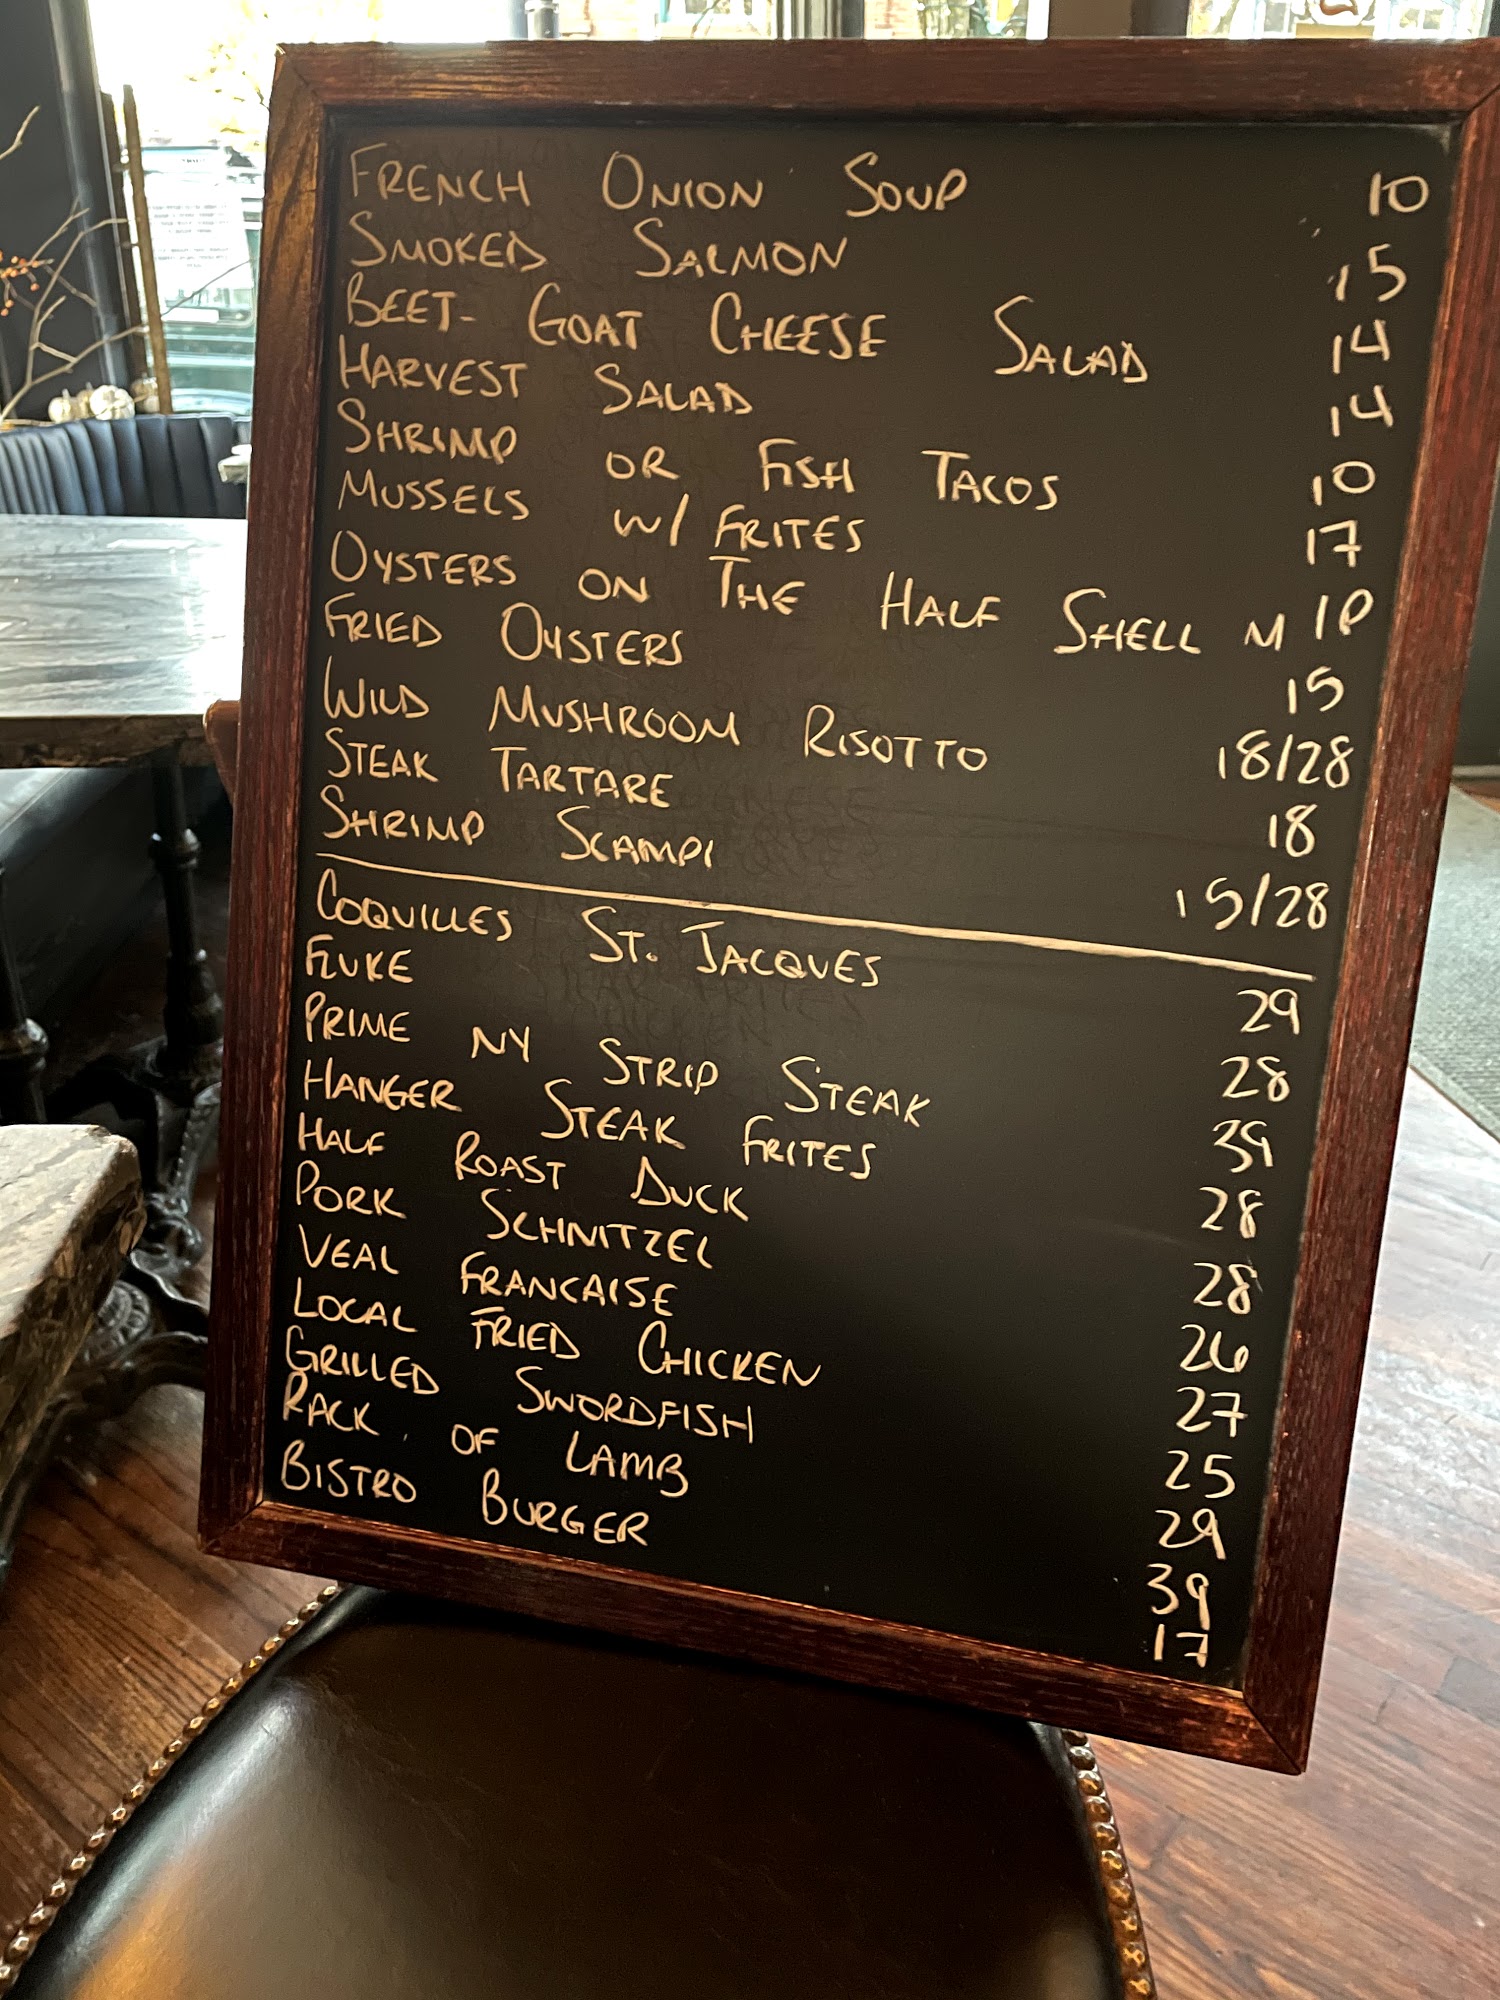 FRENCH ONION SOUP 10
SMOKED SALMON 15
BEET- GOAT CHEESE SALAD 14
HARVEST SALAD 14
SHRIMP OR FISH TACOS 10
MUSSELS W/ FRITES 17
OYSTERS ON THE HALF SHELL MP
FRIED OYSTERS 15
WILD MUSHROOM RISOTTO 18/28
STEAK TARTARE 18
SHRIMP SCAMPI 15/28
COQUILLES ST. JACQUES 29
FLUKE 28
PRIME NY STRIP STEAK 39
HANGER STEAK FRITES 28
HALF ROAST DUCK 28
PORK SCHNITZEL 26
VEAL FRANCAISE 27
LOCAL FRIED CHICKEN 25
GRILLED SWORDFISH 29
RACK OF LAMB 39
BISTRO BURGER 17